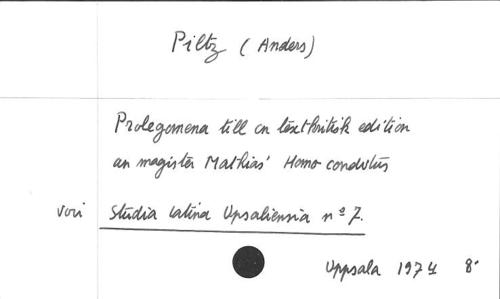 Piltz (Anders)
Prolegomena till en textkritisk edition
av magister Mathias' Homo conditus
voir Studia Latina Upsaliensia nº 7.
Uppsala 1974 8°